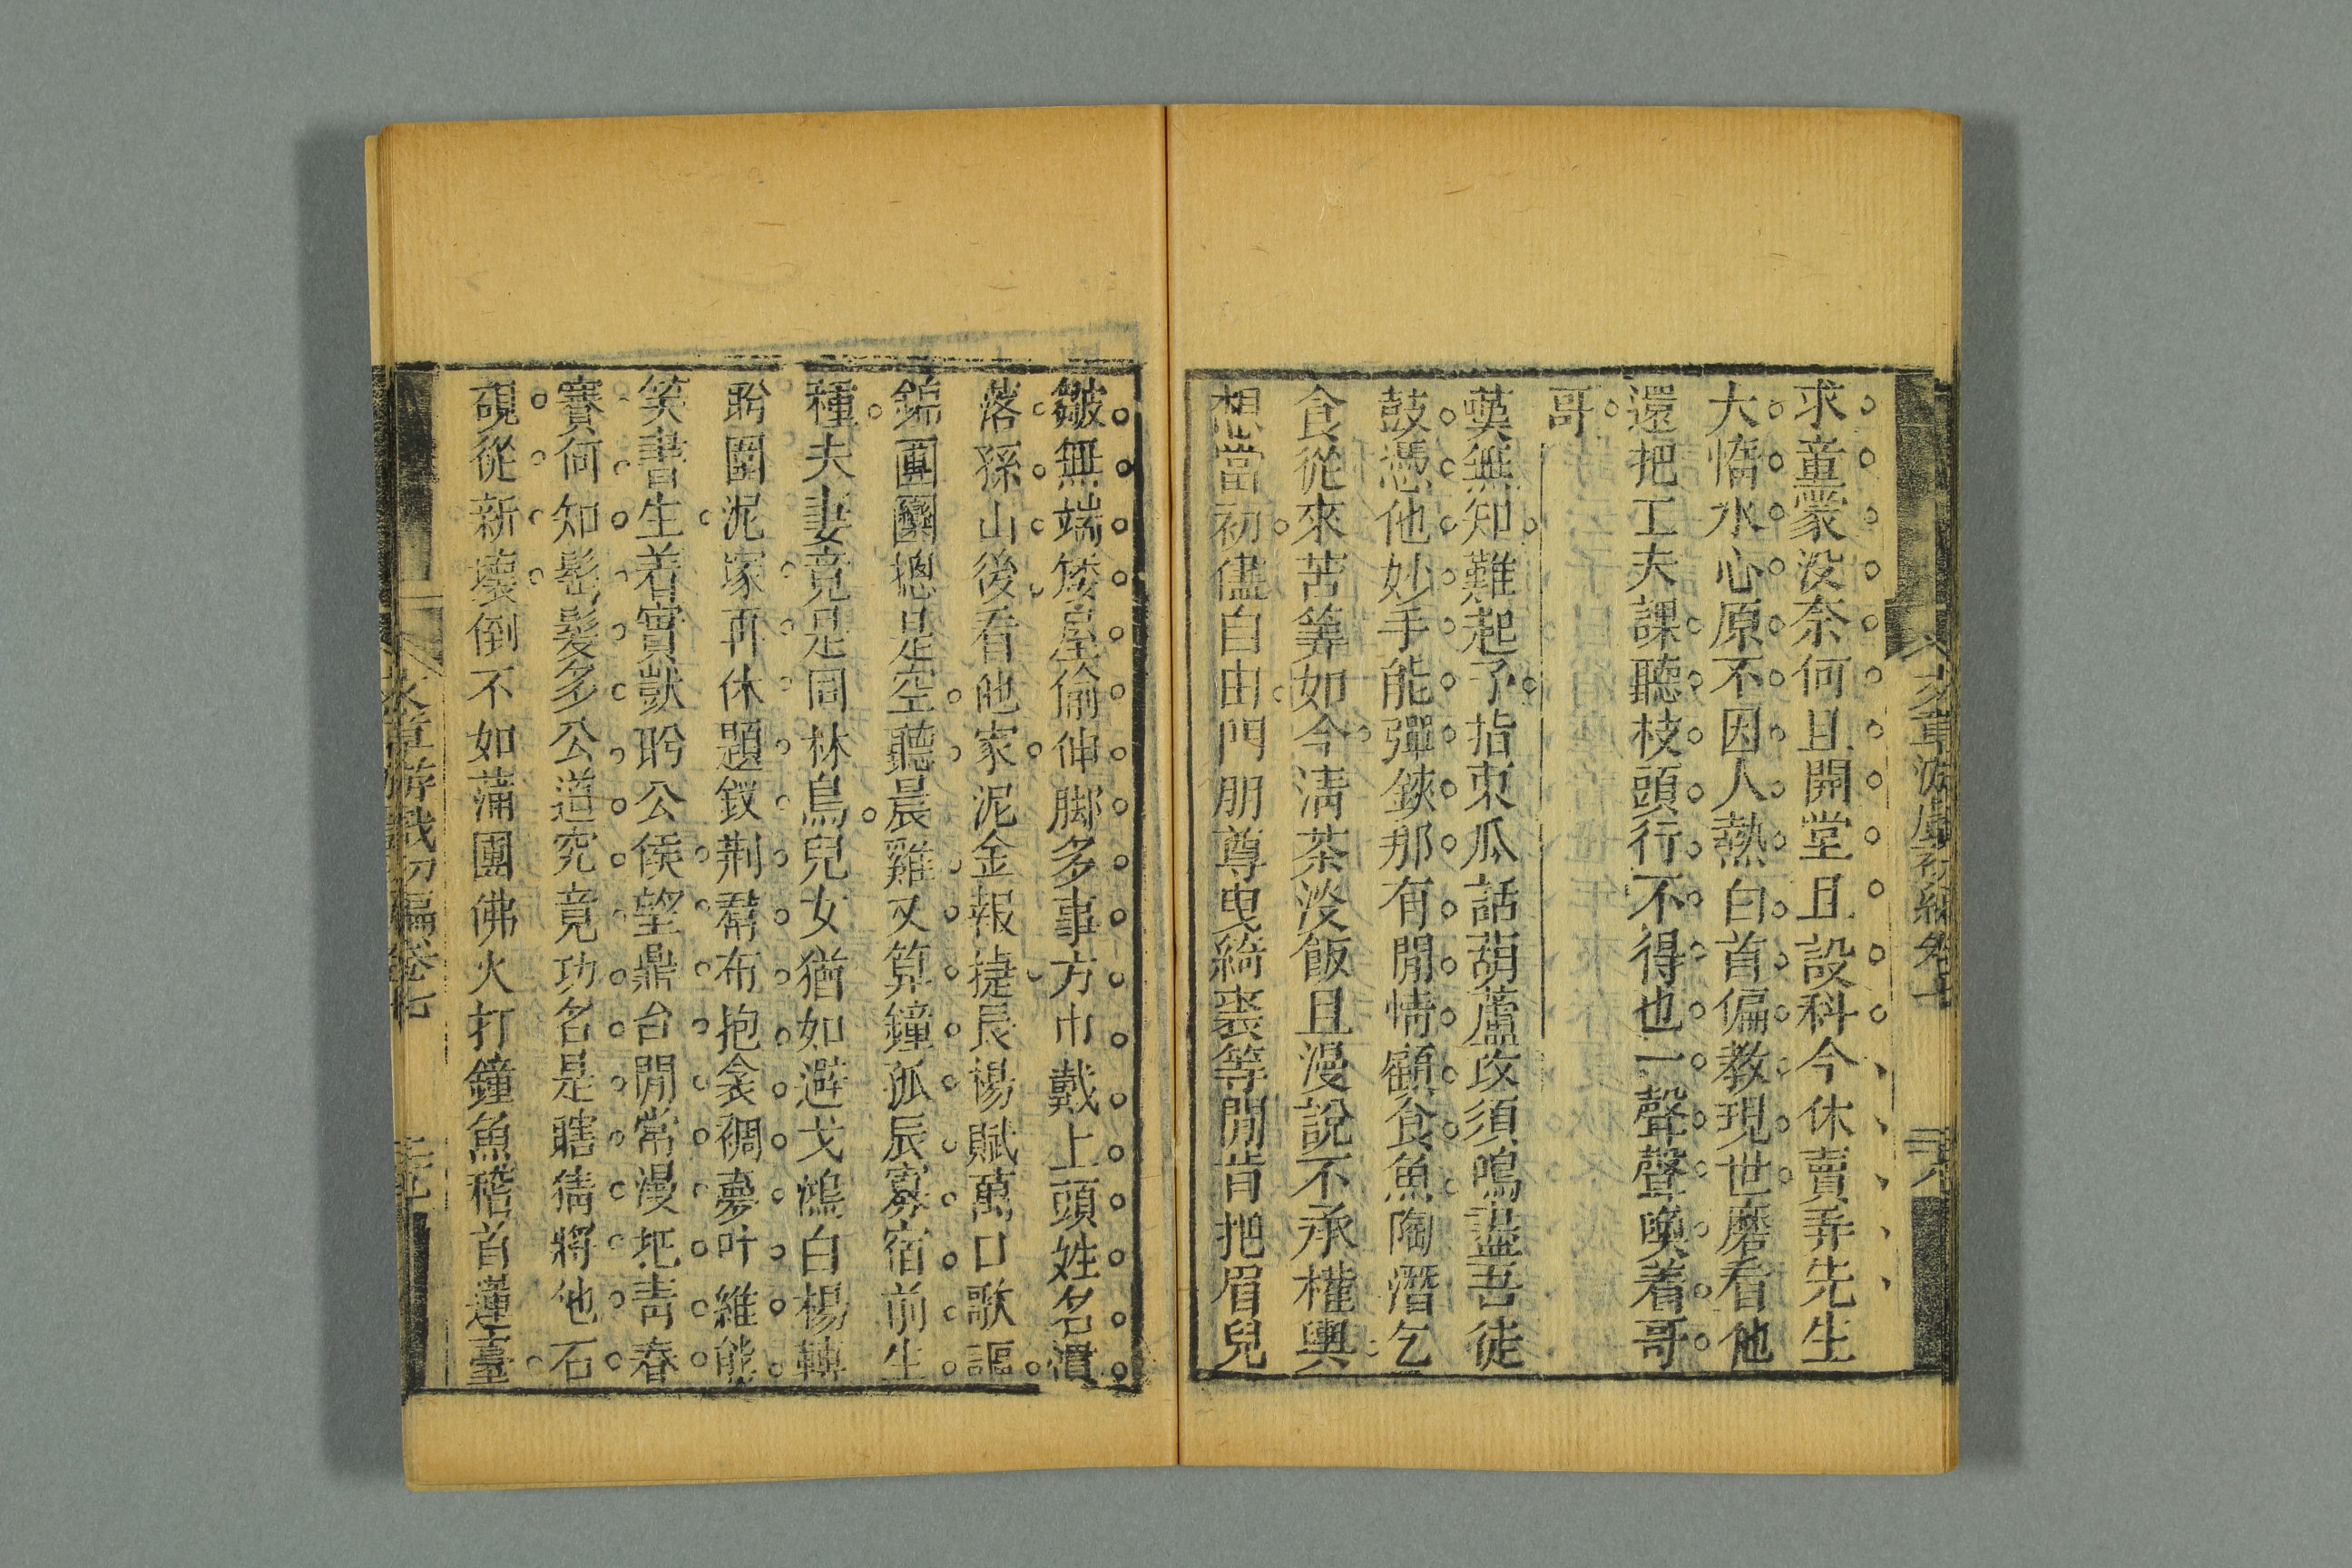 求童蒙没奈何且開堂且設科今休賣弄先生
大惛水心原不因人熱白首偏教現世磨看他
還把工夫課聽枝頭行不得也一聲聲喚着哥
哥
嘆無知難起予指東瓜話葫蘆攻須鳴盡吾徒
鼓憑他妙手能彈鋏那有閒情顧食魚陶潛乞
食從來苦筭如今淸茶没飯且漫說不承權輿
想當初儘自由門朋尊曳綺裘等閒肯把眉兒
皺無端矮屋偷伸脚多事方巾戴上頭姓名渭
落孫山後看他家泥金報捷長楊賦萬口歌謳
錦團圝總是空聽晨雞又算鐘孤辰寡宿前生
種夫妻竟是同林鳥兒女猶如避弋鴻白楊轉
盻圍泥塚再休題釵荆羣布抱衾裯夢叶維熊
笑書生着實獃盻公侯望鼎台閒常漫圯靑春
賽何知髩髮多公道究竟功名是瞎猜將他石
硯從新壞倒不如蒲團佛火打鐘魚稽首蓮臺
文章游戲初編卷七